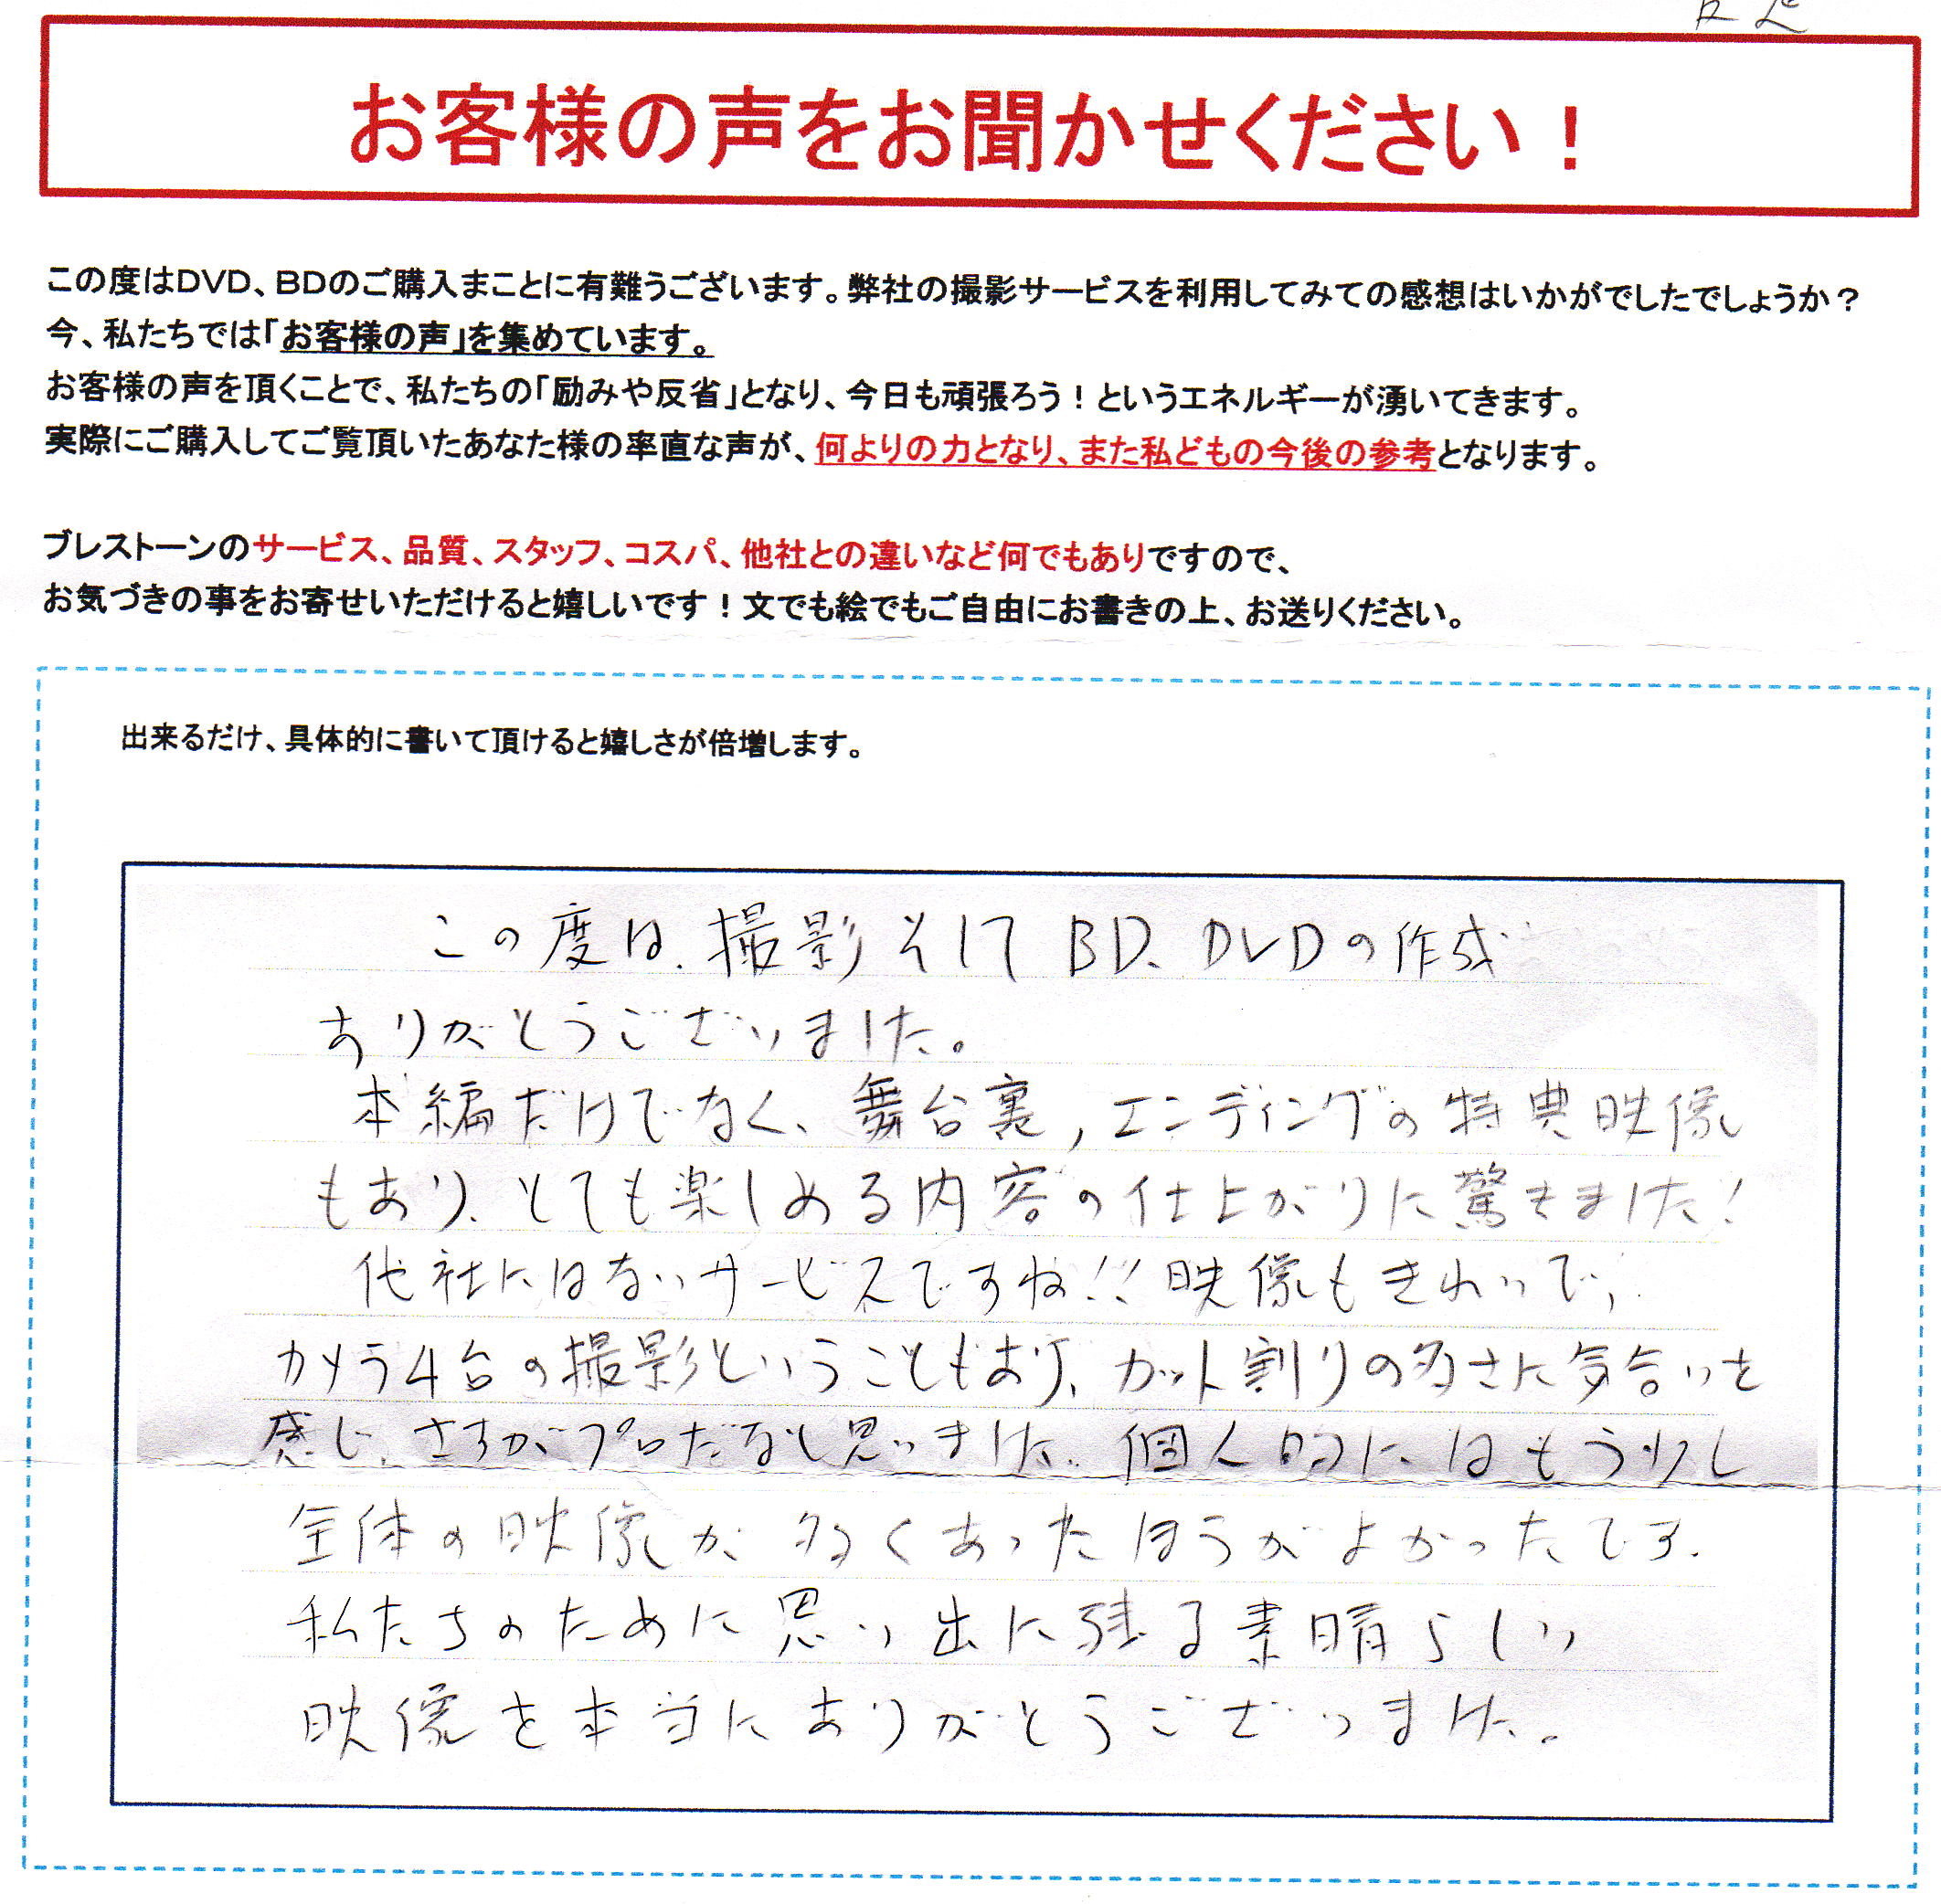 お客様の声をお聞かせください！
この度はDVD、BDのご購入まことに有難うございます。弊社の撮影サービスを利用してみての感想はいかがでしたでしょうか？
今、私たちでは「お客様の声」を集めています。
お客様の声を頂くことで、私たちの「励みや反省」となり、今日も頑張ろう！というエネルギーが湧いてきます。
実際にご購入してご覧頂いたあなた様の率直な声が、何よりの力となり、また私どもの今後の参考となります。
ブレストーンのサービス、品質、スタッフ、コスパ、他社との違いなど何でもありですので、
お気づきの事をお寄せいただけると嬉しいです！文でも絵でもご自由にお書きの上、お送りください。
出来るだけ、具体的に書いて頂けると嬉しさが倍増します。
この度は、撮影そして BD、DVDの作成
ありがとうございました。
本編だけでなく、舞台裏，エンディングの特典映像
もあり、とても楽しめる内容の仕上がりに驚きました！
他社にはないサービスですね！！映像もきれいで，
カメラ4台の撮影ということもあり、カット割りの多さに気合いを
感じ、さすがプロだなと思いました。個人的にはもう少し
全体の映像が多くあったほうがよかったです。
私たちのために思い出に残る素晴らしい
映像を本当にありがとうございました。